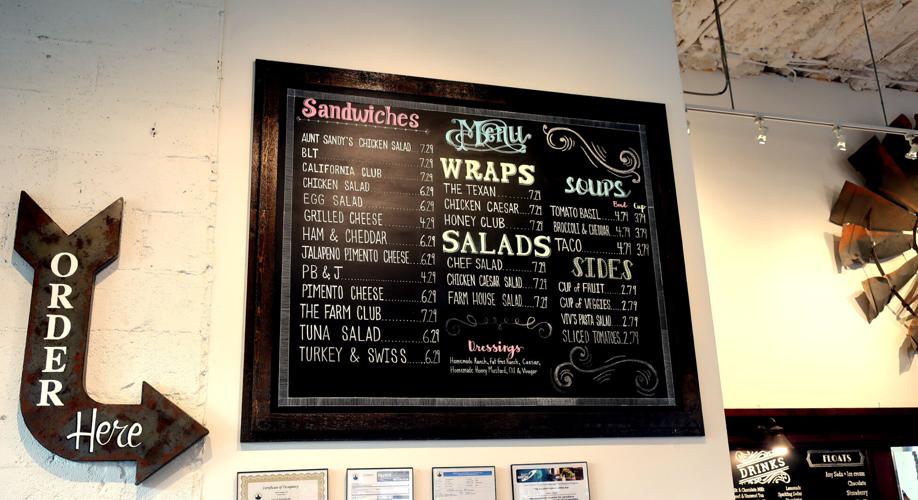 ORDER
Here
Sandwiches
AUNT SANDY'S CHICKEN SALAD 7.29
BLT 7.29
CALIFORNIA CLUB 7.29
CHICKEN SALAD 6.29
EGG SALAD 6.29
GRILLED CHEESE 4.29
HAM & CHEDDAR 6.29
JALAPENO PIMENTO CHEESE 6.29
PB & J 4.29
PIMENTO CHEESE 6.29
THE FARM CLUB 7.29
TUNA SALAD 6.29
TURKEY & SWISS 6.29
Menu
WRAPS
THE TEXAN 7.29
CHICKEN CAESAR 7.29
HONEY CLUB 7.29
SALADS
CHEF SALAD 7.29
CHICKEN CAESAR SALAD 7.29
FARM HOUSE SALAD 7.29
Dressings
Homemade Ranch, Fat Free Ranch, Caesar,
Homemade Honey Mustard, Oil & Vinegar
SOUPS
Bowl Cup
TOMATO BASIL 4.79 3.79
BROCCOLI & CHEDDAR 4.79 3.79
TACO 4.79 3.79
SIDES
CUP of FRUIT 2.79
CUP of VEGGIES 2.79
VIV'S PASTA SALAD 2.79
SLICED TOMATOES 2.79
Certificate of Occupancy
DRINKS
Chocolate Milk
Lemonade
FLOATS
Any Soda + Ice cream
Chocolate
Strawberry